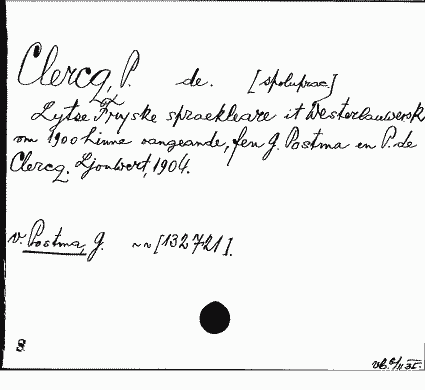 Clercq, P. de. [spoluprac.]
Lytse Fryske spraekleare it Westerlauwersk
om 1900 hinne oangeande, fen G. Postma en P. de
Clercq. Ljouwert, 1904.
v. Postma, G. ~~ [132721].
8